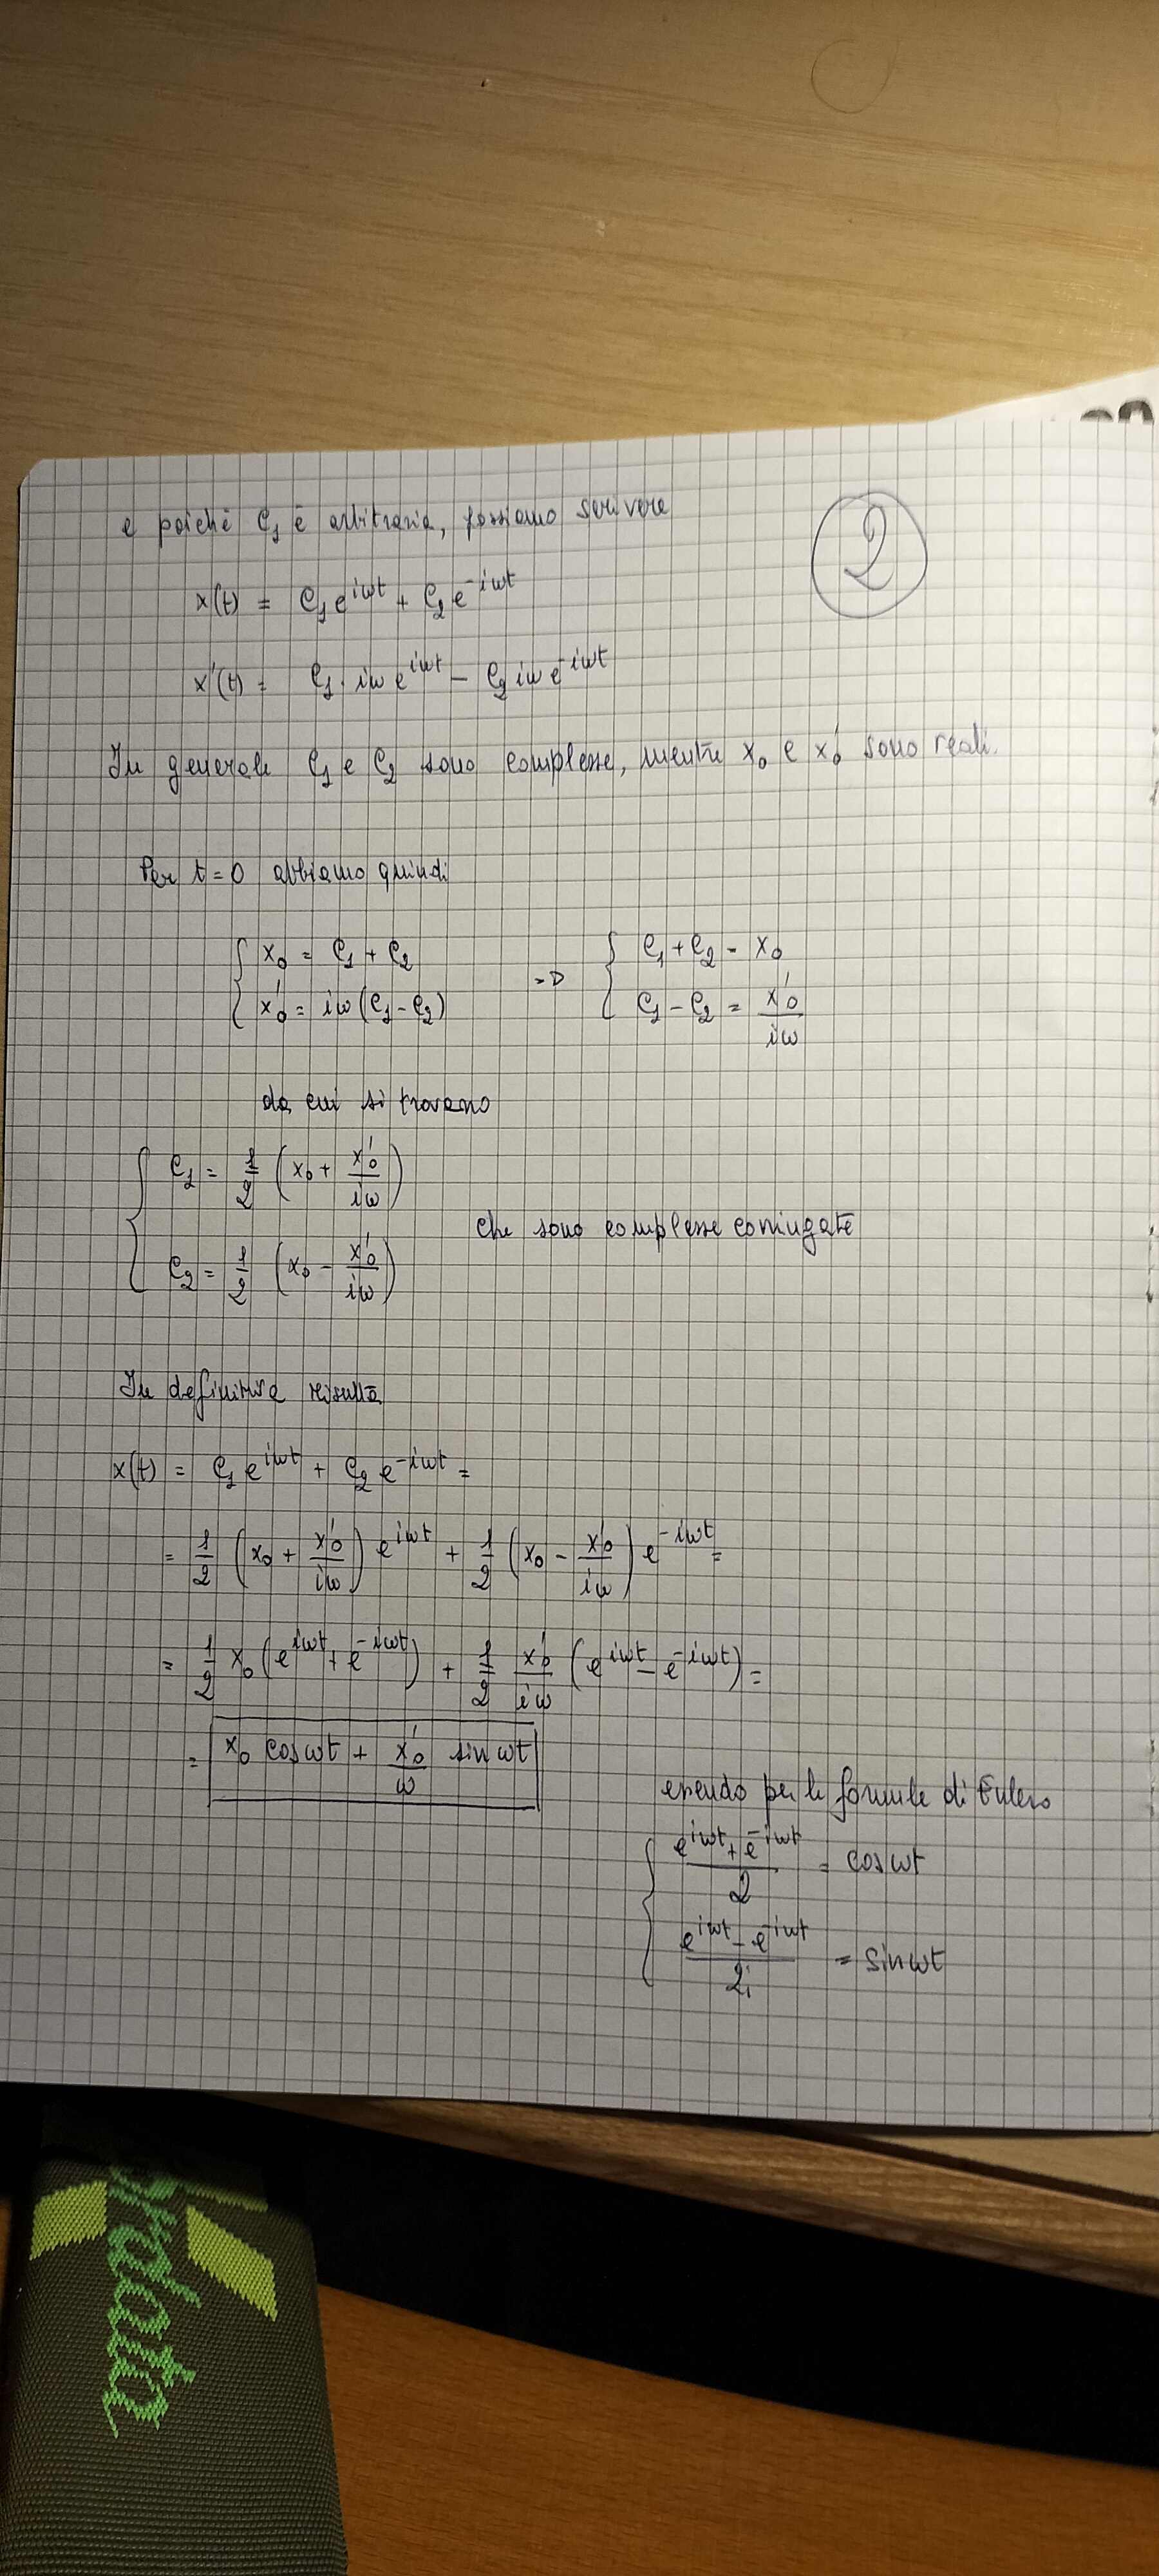 2
e poiché C₁ è arbitraria, possiamo scrivere
x(t) = C₁e^{iωt} + C₂e^{-iωt}
x'(t) = C₁·iωe^{iωt} - C₂iωe^{-iωt}
In generale C₁ e C₂ sono complesse, mentre x₀ e x₀' sono reali.
Per t=0 abbiamo quindi
{ x₀ = C₁ + C₂ => { C₁+C₂ = x₀
{ x₀' = iω(C₁-C₂) { C₁-C₂ = x₀'/iω
da cui si trovano
{ C₁ = 1/2 (x₀ + x₀'/iω)
che sono complesse coniugate
{ C₂ = 1/2 (x₀ - x₀'/iω)
In definitiva risulta
x(t) = C₁e^{iωt} + C₂e^{-iωt} =
= 1/2 (x₀ + x₀'/iω) e^{iωt} + 1/2 (x₀ - x₀'/iω) e^{-iωt} =
= 1/2 x₀(e^{iωt}+e^{-iωt}) + 1/2 x₀'/iω (e^{iωt}-e^{-iωt}) =
= x₀ cosωt + x₀'/ω sinωt
essendo per le formule di Eulero
{ (e^{iωt}+e^{-iωt})/2 = cosωt
{ (e^{iωt}-e^{-iωt})/2i = sinωt